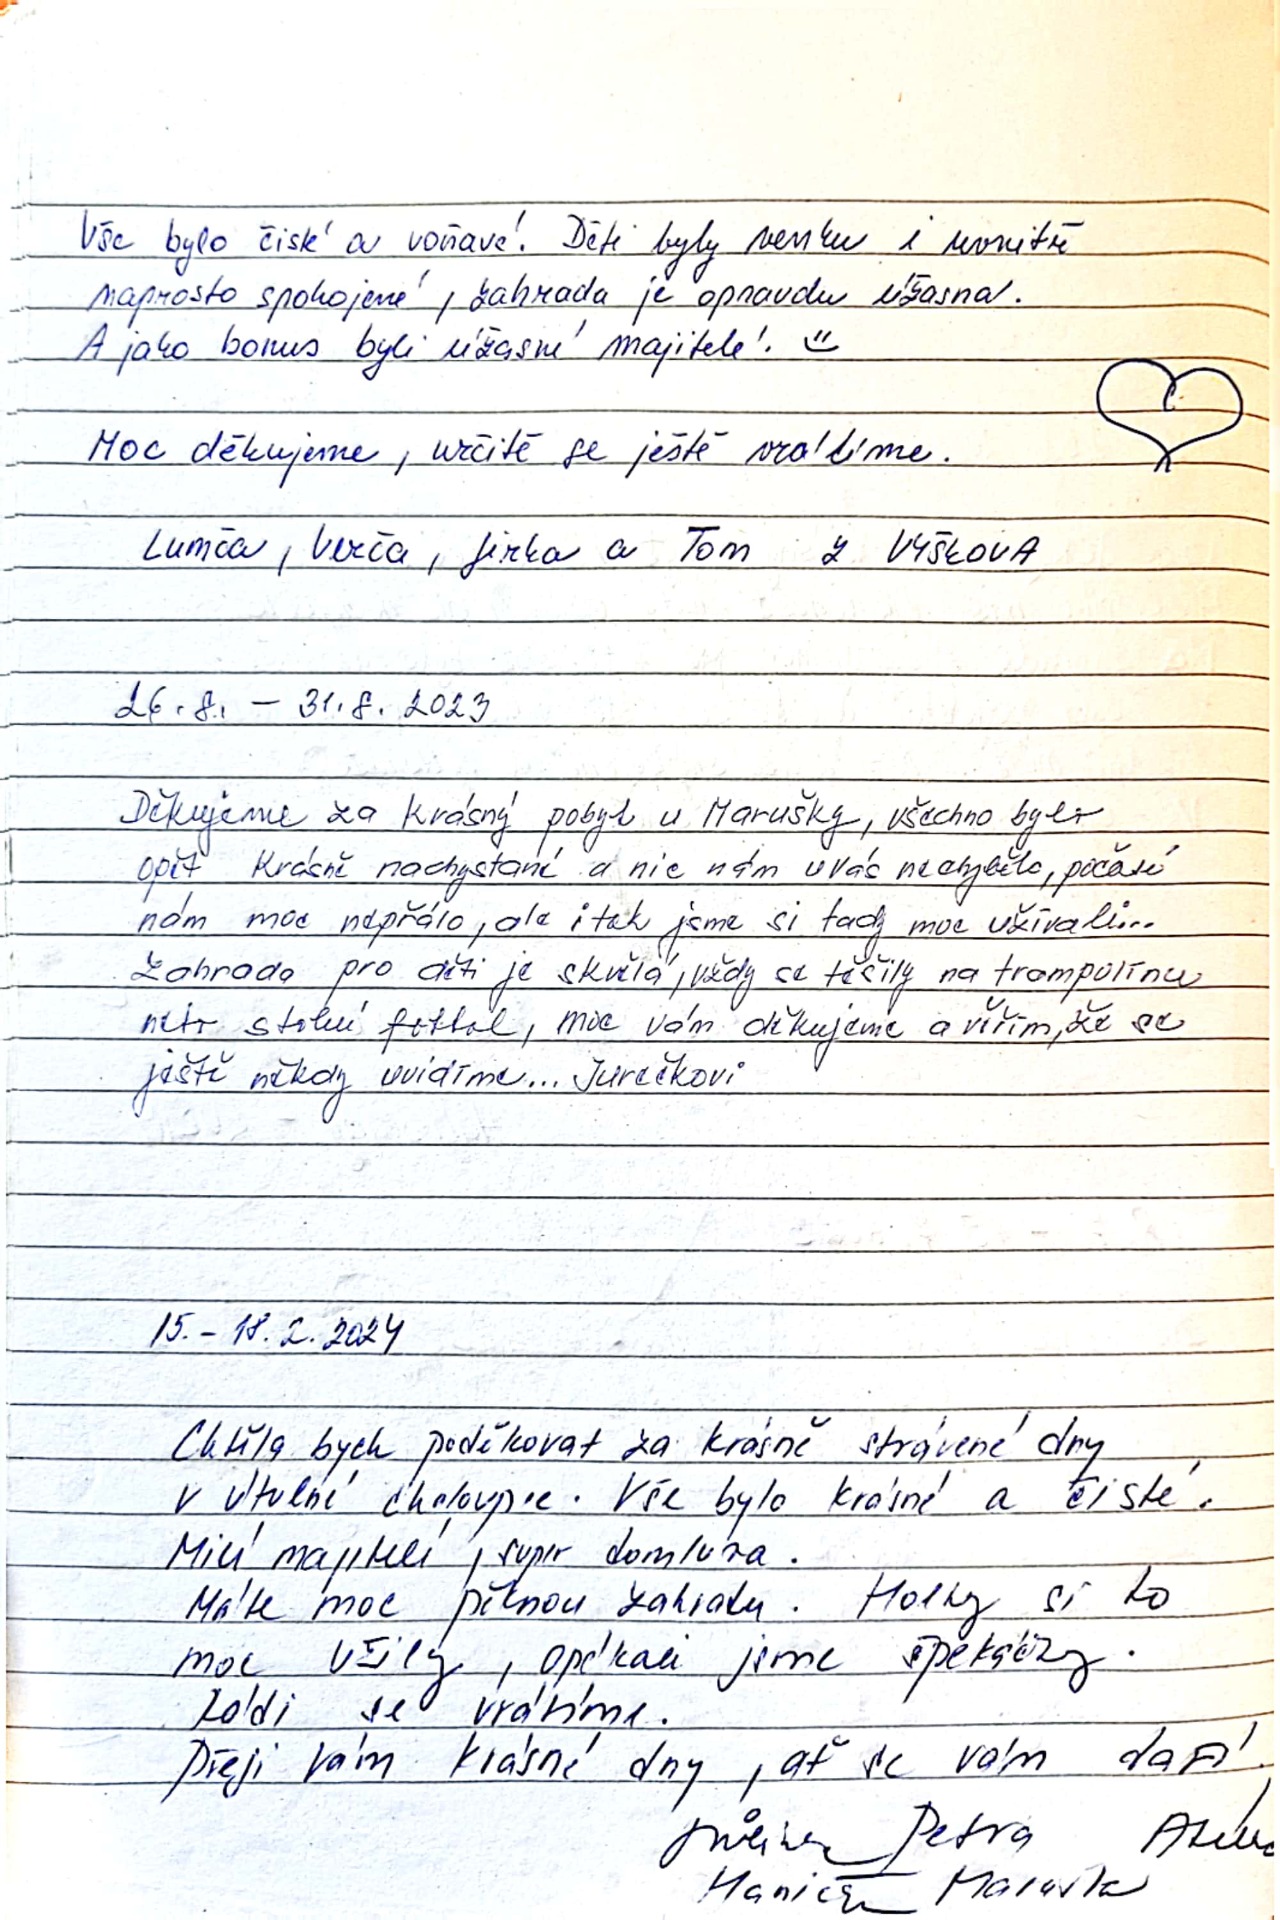 Vše bylo čisté a voňavé. Děti byly venku i uvnitř
naprosto spokojené, zahrada je opravdu úžasná.
A jako bonus byli úžasní majitelé.
Moc děkujeme, určitě se ještě vrátíme.
Lumča, Verča, Jirka a Tom z VYŠKOVA
26.8. – 31.8. 2023
Děkujeme za krásný pobyt u Marušky, všechno bylo
opět krásně nachystané a nic nám u vás nechybělo, počasí
nám moc nepřálo, ale i tak jsme si tady moc užívali...
Zahrada pro děti je skvělá, vždy se těšily na trampolínu
nebo stolní fotbal, moc vám děkujeme a věřím, že se
ještě někdy uvidíme... Jurečkovi
15. – 18. 2. 2024
Chtěla bych poděkovat za krásně strávené dny
v útulné chaloupce. Vše bylo krásné a čisté.
Milí majitelé, super domluva.
Máte moc pěknou zahradu. Holky si to
moc užily, opékali jsme špekáčky.
Rádi se vrátíme.
Přeji vám krásné dny, ať se vám daří.
Petra
Maruška